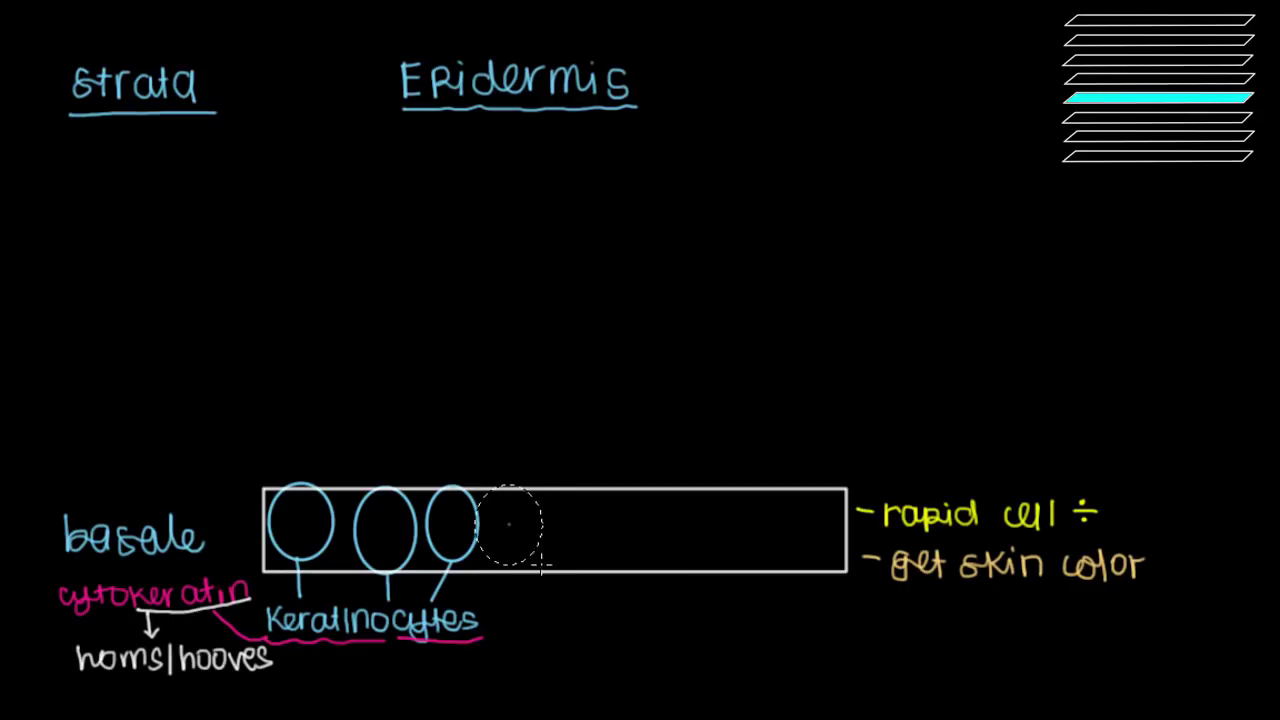 strata
Epidermis
basale
cytokeratin
horns/hooves
Keratinocytes
- rapid cell ÷
- get skin color